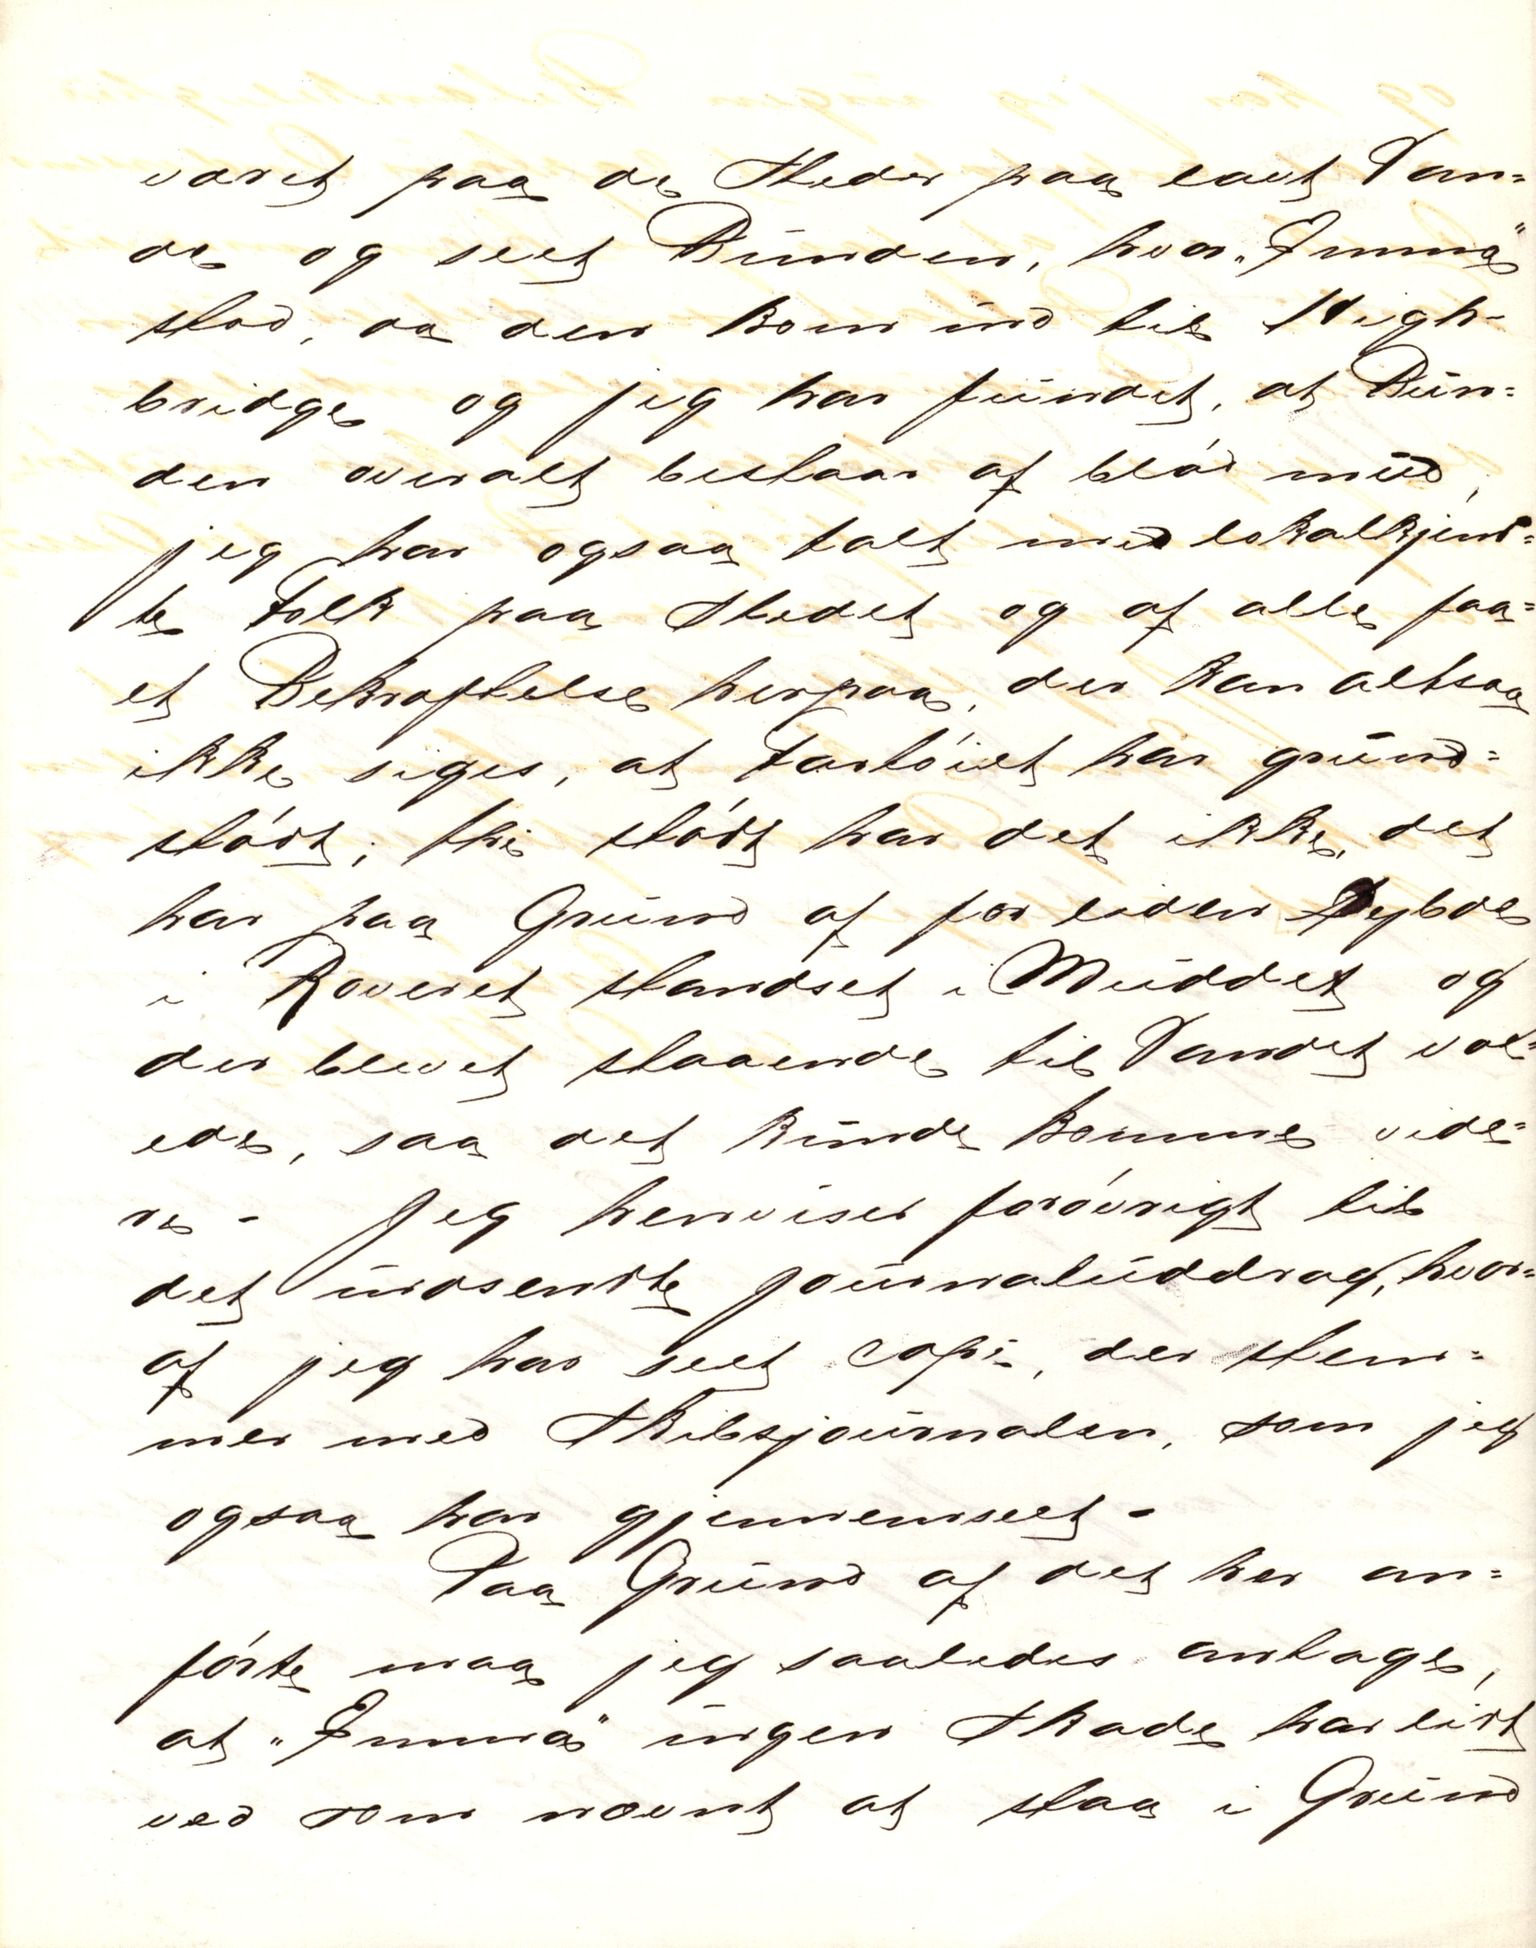 været paa de Steder paa lavt Van=
de og seet Bunden, hvor „Imna"
stod, da den kom ind til High-
bridge og jeg har fundet, at Bun=
den overalt bestaar af blød mud,
jeg har ogsaa talt med lokalkjend=
te Folk paa Stedet og af alle faa=
et Bekræftelse herpaa, der kan altsaa
ikke siges, at Fartøiet har grund=
stødt; thi stødt har det ikke, det
har paa Grund af for liden Dybde
i Reveret standset i Muddet og
der blevet staaende til Vandet vox=
ede, saa det kunde komme vide=
re - Jeg henviser forøvrigt til
det indsendte Journaluddrag, hvor=
af jeg har seet copi, der stem=
mer med Skibsjournalen, som jeg
ogsaa har gjennemseet -
Paa Grund af det her an=
førte maa jeg saaledes antage,
at „Imna" ingen Skade har lidt
ved som nævnt at staa i Grund